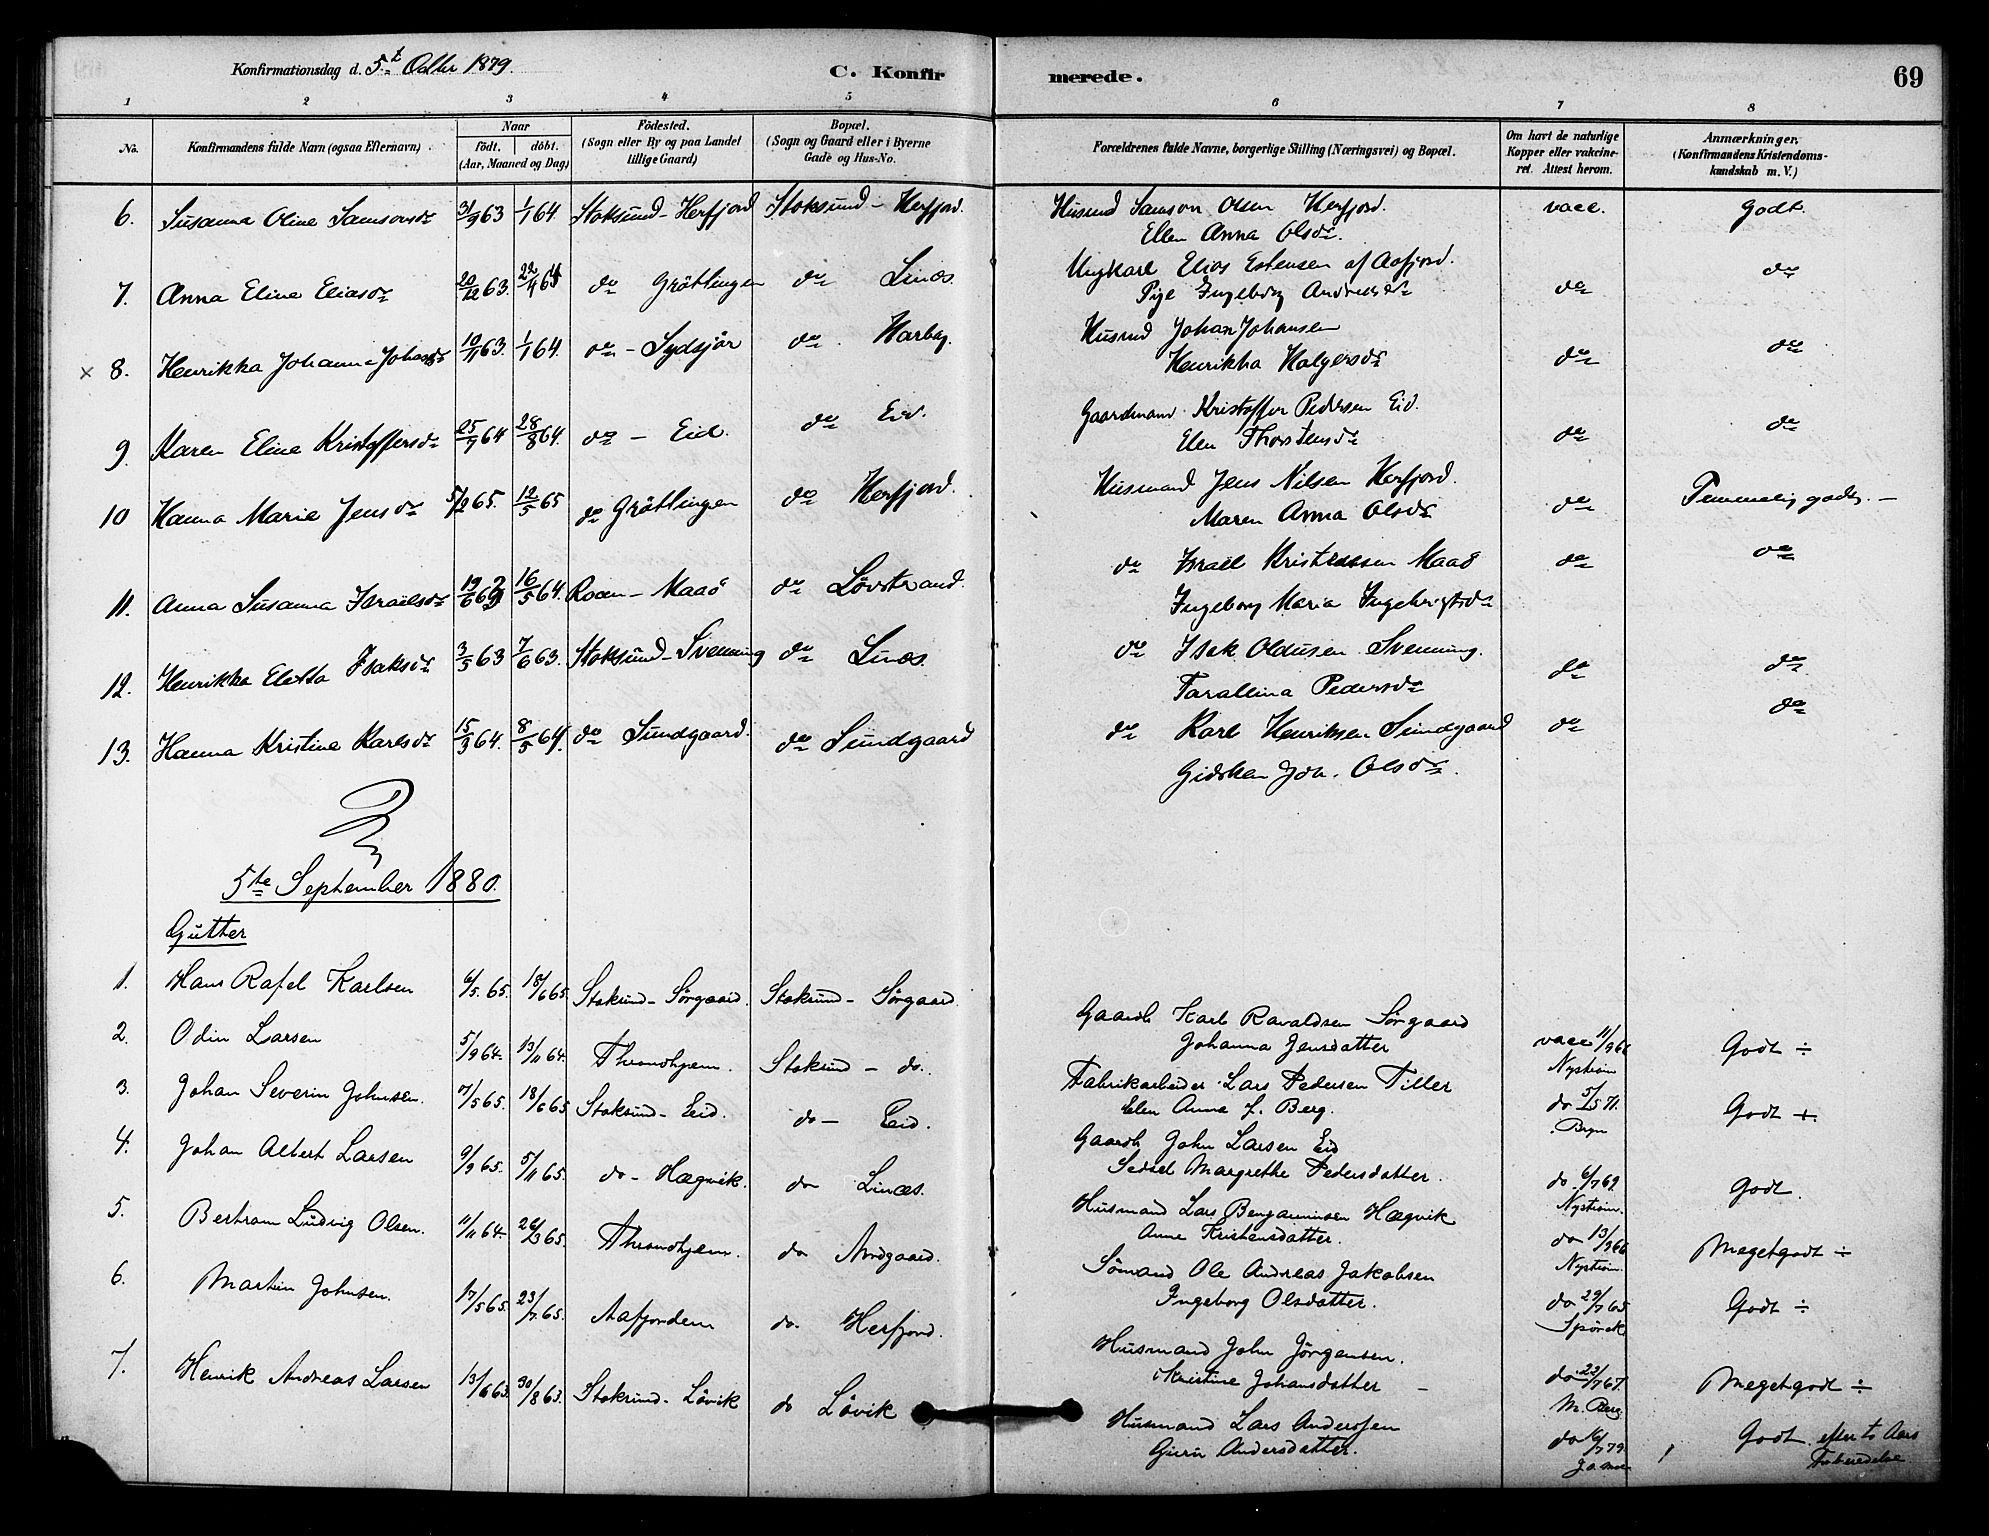 Konfirmationsdag d. 5.t Octbr 1879.
C. Konfirmerede.
69
1 2 3 4 5 6 7 8
No.
Konfirmandens fulde Navn (ogsaa Efternavn)
Naar
födt. döbt.
(Aar, Maaned og Dag)
Födested.
(Sogn eller By og paa Landet tillige Gaard)
Bopæl.
(Sogn og Gaard eller i Byerne Gade og Hus-No.
Forældrenes fulde Navne, borgerlige Stilling (Næringsvei) og Bopæl.
Om havt de naturlige Kopper eller vakcineret. Attest herom.
Anmærkninger,
(Konfirmandens Kristendomskundskab m. V.)
6. Susanna Oline Samsonsdr 3/9 63 1/1 64. Stoksund - Herfjord Stoksund - Herfjord. Husmd Samson Olsen Herfjord. vacc. Godt.
Ellen Anna Olsdr.
7. Anna Eline Eliasdr 20/12 63. 22/4 64 do Gröttingen do Linæs. Ungkarl Elias Estensen af Aafjord. do do
Pige Ingeborg Andreasdr
× 8. Henrikka Johanna Johansdr 10/11 63. 1/1 64. do - Sydsjör do Harbag. Husmd Johan Johansen do do
Henrikka Holgersdr
9. Karen Eline Kristoffersdr 25/7 64 28/8 64. do - Eid. do Eid. Gaardmand Kristoffer Pedersen Eid. do do
Elen Thorstensdr
10 Hanna Marie Jensdr 5/2 65. 12/5 65 do Gröttingen do Herfjord. Husmand Jens Nilsen Herfjord. do Temmelig godt. -
Maren Anna Olsdr
11. Anna Susanna Israelsdr 19/6 63 16/5 64. Roan - Maaö do Lövstrand. do Israel Kristensen Maaö do do
Ingeborg Maria Ingebrigtsdr
12. Henrikka Elotta Isaksdr 3/5 63 7/6 63. Stoksund - Svenning do Linæs. do Isak Oldusen Svenning. do do
Tarallina Pedersdr
13. Hanna Kristine Karlsdr 15/3 64. 8/5 64. do Sundgaard. do Sundgaard do Karl Henriksen Sundgaard do do
Gidsken Joh. Olsdr.
5te September 1880.
Gutter
1. Hans Rafel Karlsen 6/5. 65. 18/6 65. Stoksund - Sörgaard. Stoksund - Sörgaard. Gaardb Karl Ravaldsen Sörgaard vacc 11/9 66 Godt ÷
Johanna Jensdatter Nyström
2. Odin Larsen 5/9 64. 13/11 64. Throndhjem. Stoksund - do. Fabrikarbeider Lars Pedersen Tiller do 5/5 71. Godt +.
Elen Anna L. Berg. Bryn
3. Johan Severin Johnsen. 7/5 65. 18/6 65 Stoksund - Eid. do - Eid. Gaardb John Larsen Eid do. 6/7 69. Godt.
Sedsel Margrethe Pedersdatter. Nyström.
4. Johan Albert Larsen 9/9 65. 5/11 65. do - Hægvik. do Linæs. Husmand Lars Benjaminsen Hægvik do 13/9 66 Megetgodt ÷
Anne Kristensdatter. Nyström.
5. Bertram Ludvig Olsen. 11/11 64. 26/3 65. Throndhjem. do Nordgaard. Sömand Ole Andreas Jakobsen do 29/7 65 Godt ÷
Ingeborg Olsdatter. Spörck
6. Martin Johnsen. 17/5 65. 23/7. 65. Aafjorden do. Herfjord. Husmand John Jörgensen. do 22/7 67. Megetgodt ÷
Kristine Johansdatter - M. Berg
7. Henrik Andreas Larsen 13/6 63 30/8 63. Stoksund - Lövik do Lövik Husmand Lars Anderssen do 16/7 79. Godt efter to Aars
Guru Andersdatter. Forberedelse